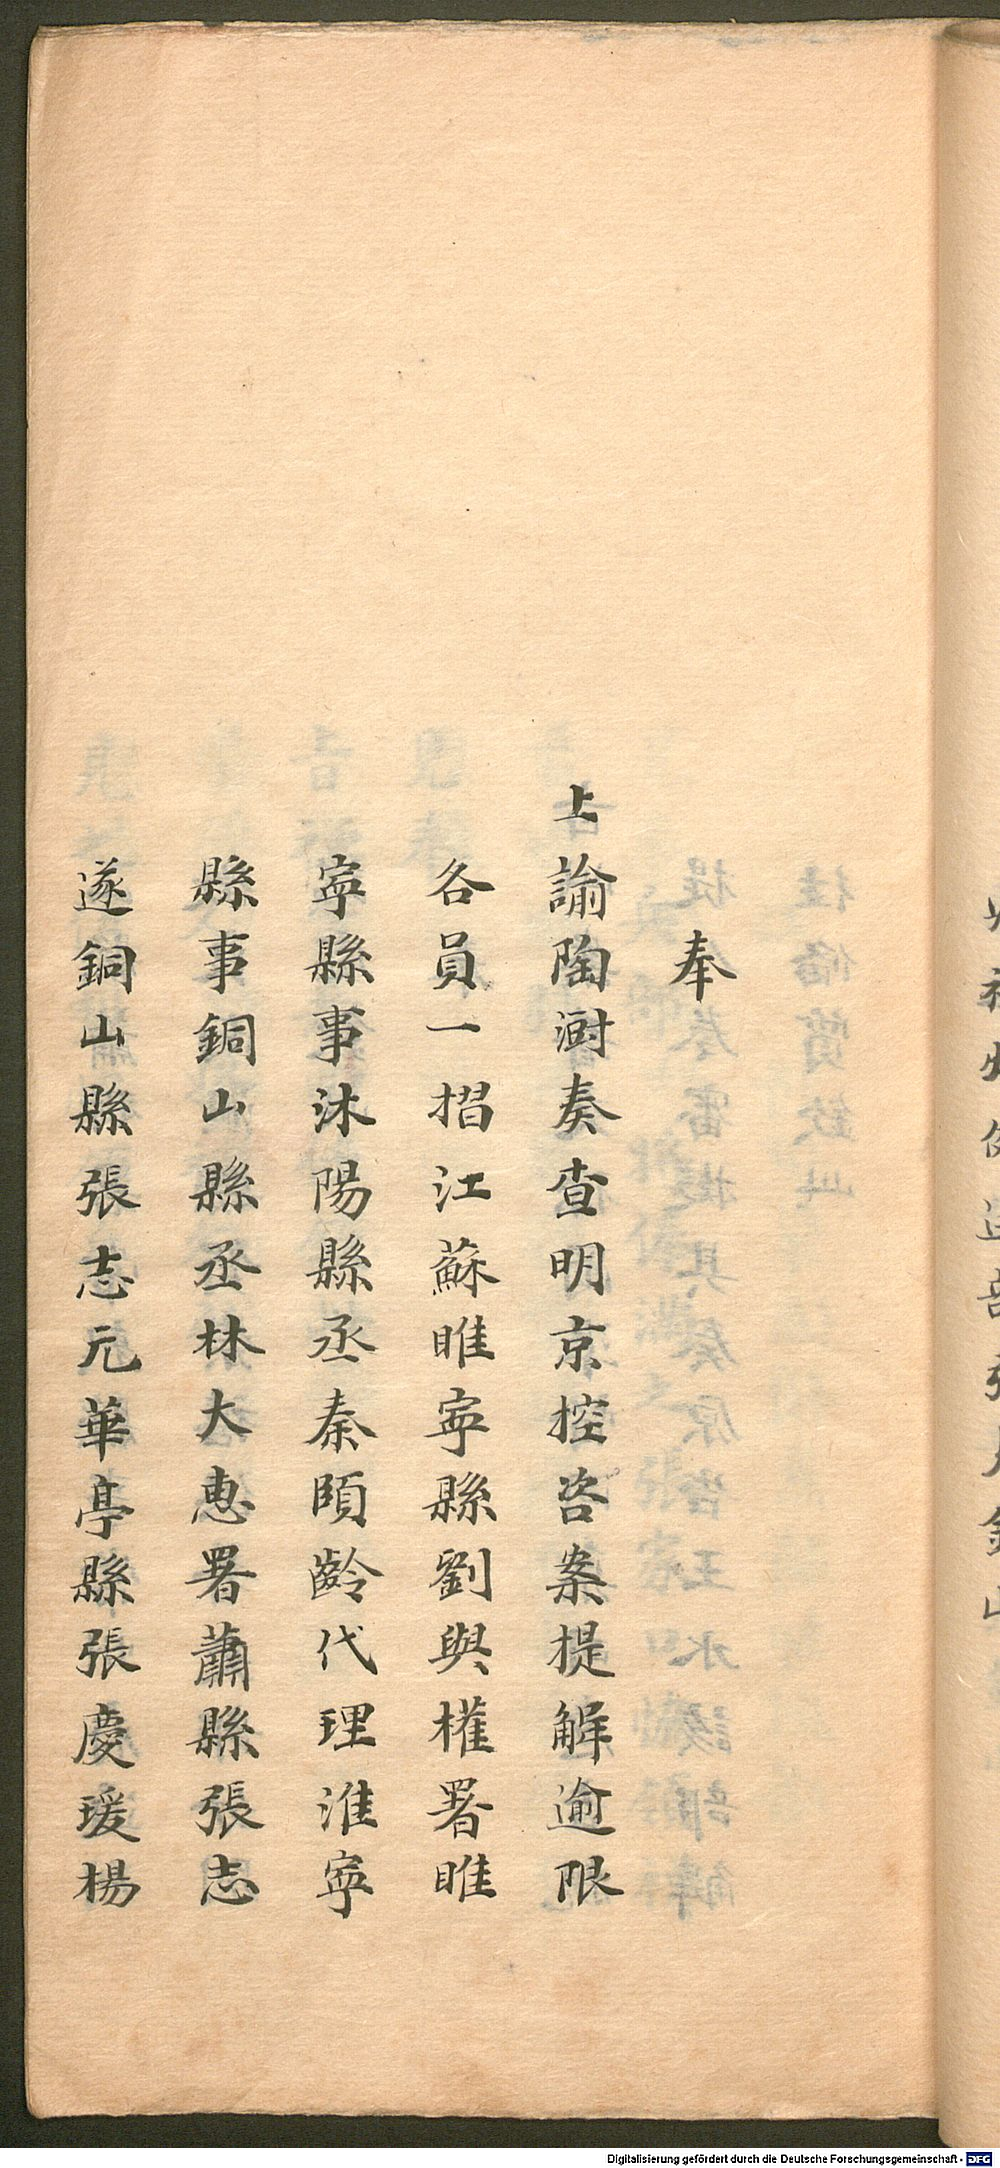 奉
上諭陶澍奏查明京控咨案提解逾限
各員一摺江蘇睢寧縣劉與權署睢
寧縣事沐陽縣丞秦頤齡代理淮寧
縣事銅山縣丞林大惠署蕭縣張志
遂銅山縣張志元華亭縣張慶瑗楊
Digitalisierung gefördert durch die Deutsche Forschungsgemeinschaft - DFG